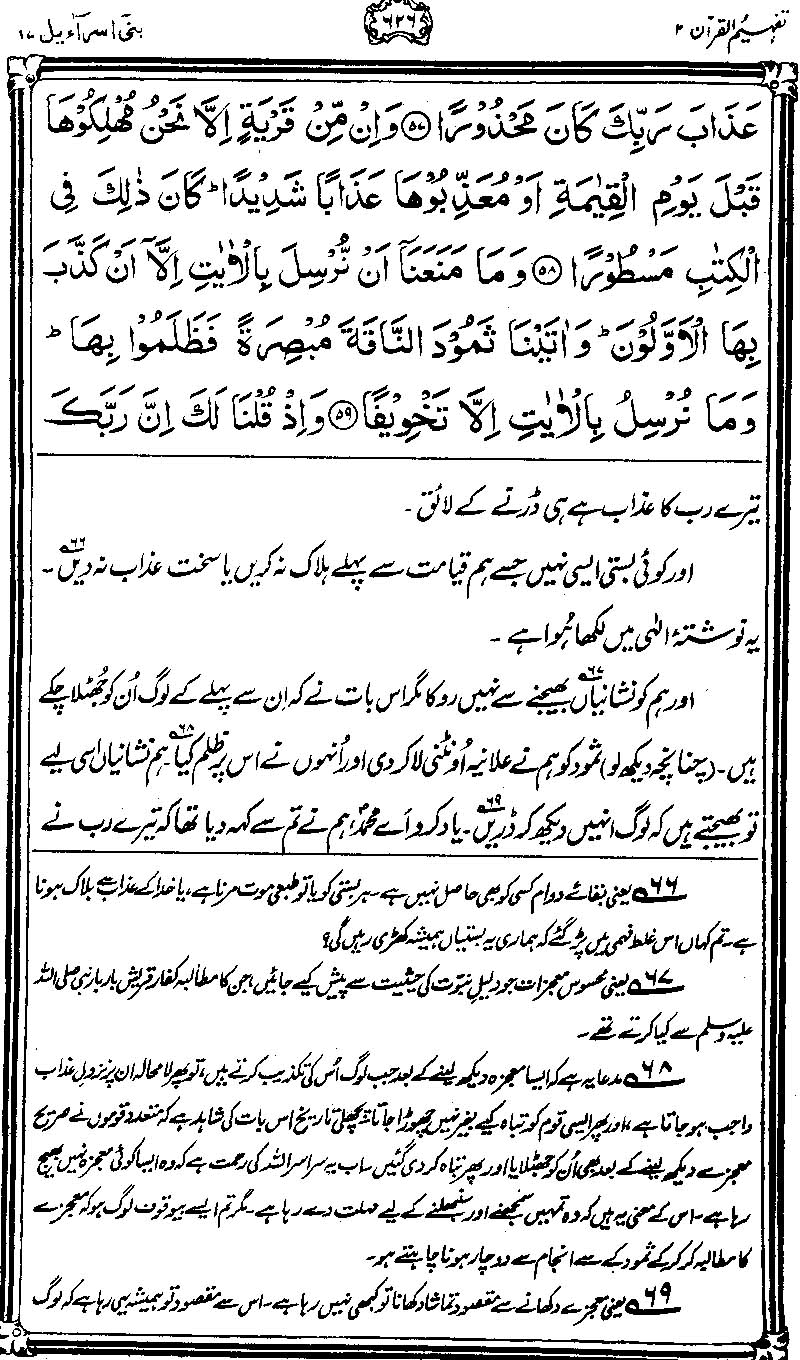 تفہیم القرآن ۲
۶۲۶
بنی اسرآءیل ۱۷
عَذَابَ رَبِّكَ كَانَ مَحْذُوْرًا ﴿۵۷﴾ وَاِنْ مِّنْ قَرْيَةٍ اِلَّا نَحْنُ مُهْلِكُوْهَا
قَبْلَ يَوْمِ الْقِيٰمَةِ اَوْ مُعَذِّبُوْهَا عَذَابًا شَدِيْدًا ؕ كَانَ ذٰلِكَ فِى
الْكِتٰبِ مَسْطُوْرًا ﴿۵۸﴾ وَمَا مَنَعَنَاۤ اَنْ نُّرْسِلَ بِالْاٰيٰتِ اِلَّاۤ اَنْ كَذَّبَ
بِهَا الْاَوَّلُوْنَ ؕ وَاٰتَيْنَا ثَمُوْدَ النَّاقَةَ مُبْصِرَةً فَظَلَمُوْا بِهَا ؕ
وَمَا نُرْسِلُ بِالْاٰيٰتِ اِلَّا تَخْوِيْفًا ﴿۵۹﴾ وَاِذْ قُلْنَا لَكَ اِنَّ رَبَّكَ
تیرے رب کا عذاب ہے ہی ڈرنے کے لائق۔
اور کوئی بستی ایسی نہیں جسے ہم قیامت سے پہلے ہلاک نہ کریں یا سخت عذاب نہ دیں۶۶۔
یہ نوشتۂ الٰہی میں لکھا ہُوا ہے۔
اور ہم کو نشانیاں۶۷ بھیجنے سے نہیں روکا مگر اس بات نے کہ اِن سے پہلے کے لوگ اُن کو جُھٹلا چکے
ہیں۔ (چنانچہ دیکھ لو) ثمود کو ہم نے علانیہ اُونٹنی لا کر دی اور اُنہوں نے اس پر ظلم کیا۶۸۔ ہم نشانیاں اسی لیے
تو بھیجتے ہیں کہ لوگ انہیں دیکھ کر ڈریں۶۹۔ یاد کرو اَے محمدؐ، ہم نے تم سے کہہ دیا تھا کہ تیرے رب نے
۶۶ یعنی بقائے دوام کسی کو بھی حاصل نہیں ہے۔ ہر بستی کو یا تو طبعی موت مرنا ہے، یا خدا کے عذاب سے ہلاک ہونا
ہے۔ تم کہاں اس غلط فہمی میں پڑ گئے کہ ہماری یہ بستیاں ہمیشہ کھڑی رہیں گی؟
۶۷ یعنی محسوس معجزات جو دلیلِ نبوّت کی حیثیت سے پیش کیے جائیں، جن کا مطالبہ کفار قریش بار بار نبی صلی اللہ
علیہ وسلم سے کیا کرتے تھے۔
۶۸ مدعا یہ ہے کہ ایسا معجزہ دیکھ لینے کے بعد جب لوگ اُس کی تکذیب کرتے ہیں، تو پھر لامحالہ ان پر نزولِ عذاب
واجب ہو جاتا ہے، اور پھر ایسی قوم کو تباہ کیے بغیر نہیں چھوڑا جاتا۔ پچھلی تاریخ اس بات کی شاہد ہے کہ متعدد قوموں نے صریح
معجزے دیکھ لینے کے بعد بھی اُن کو جھٹلایا اور پھر تباہ کر دی گئیں۔ اب یہ سراسر اللہ کی رحمت ہے کہ وہ ایسا کوئی معجزہ نہیں بھیج
رہا ہے۔ اس کے معنی یہ ہیں کہ وہ تمہیں سمجھنے اور سنبھلنے کے لیے مہلت دے رہا ہے۔ مگر تم ایسے بیوقوف لوگ ہو کہ معجزے
کا مطالبہ کر کر کے ثمود کے سے انجام سے دوچار ہونا چاہتے ہو۔
۶۹ یعنی معجزے دکھانے سے مقصود تماشا دکھانا تو کبھی نہیں رہا ہے۔ اس سے مقصود تو ہمیشہ یہی رہا ہے کہ لوگ